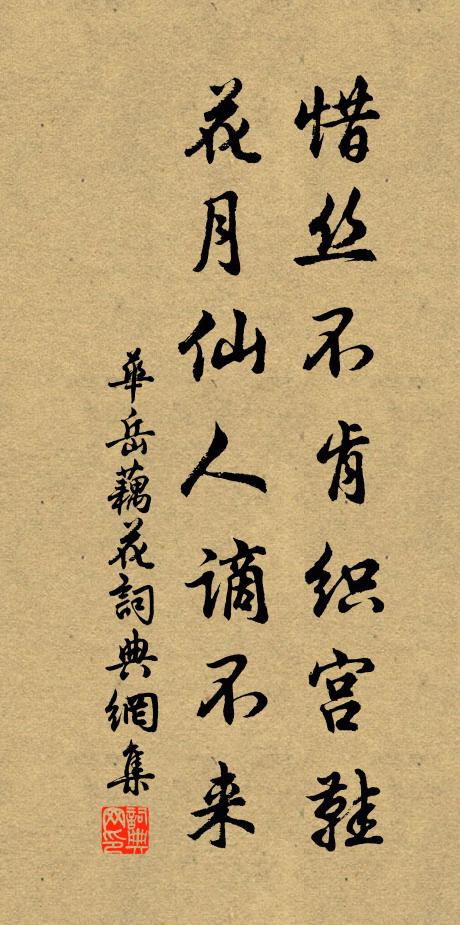 惜丝不肯织宫鞋
花月仙人谪不来
華岳藕花詞典網集
詞典网印